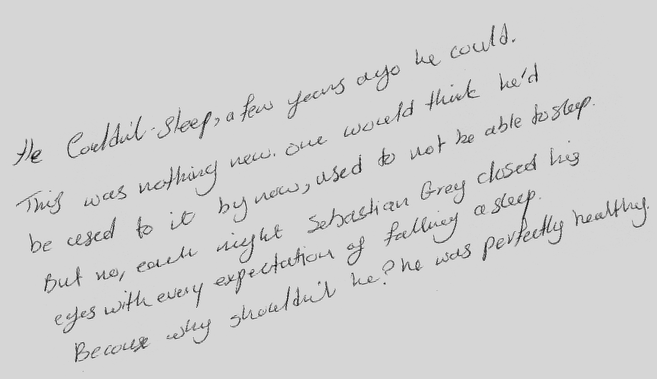 He Couldn't sleep, a few years ago he could.
This was nothing new. one would think he'd
be used to it by now, used to not be able to sleep.
But no, each night Sebastian Grey closed his
eyes with every expectation of falling asleep.
Because why shouldn't he? he was perfectly healthy.